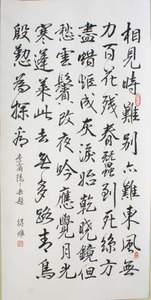 相見難別亦難東風無
力百花残春蠶到死絲方
盡蜡炬成灰淚始乾曉鏡但
愁雲鬢改夜吟應覺月光
寒蓬萊此去無多路青鳥
殷懃為探看
李商隱無題